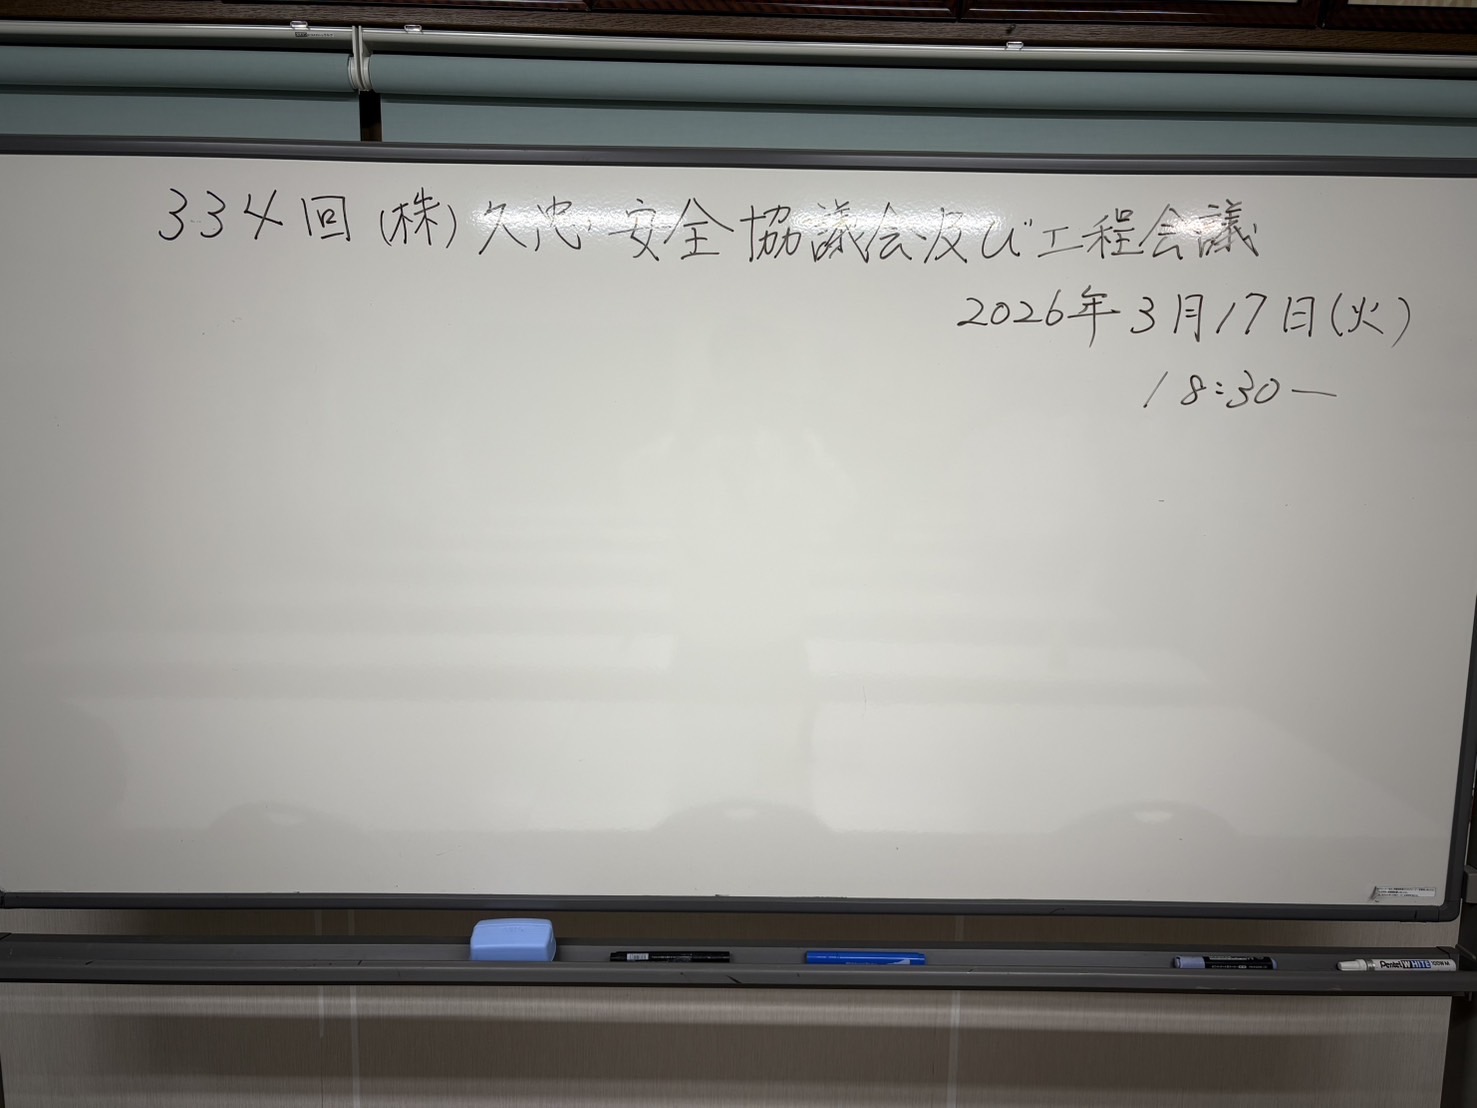 334回(株)久忠 安全協議会及び工程会議
2026年3月17日(火)
18:30ー
Pentel WHITE 100W M